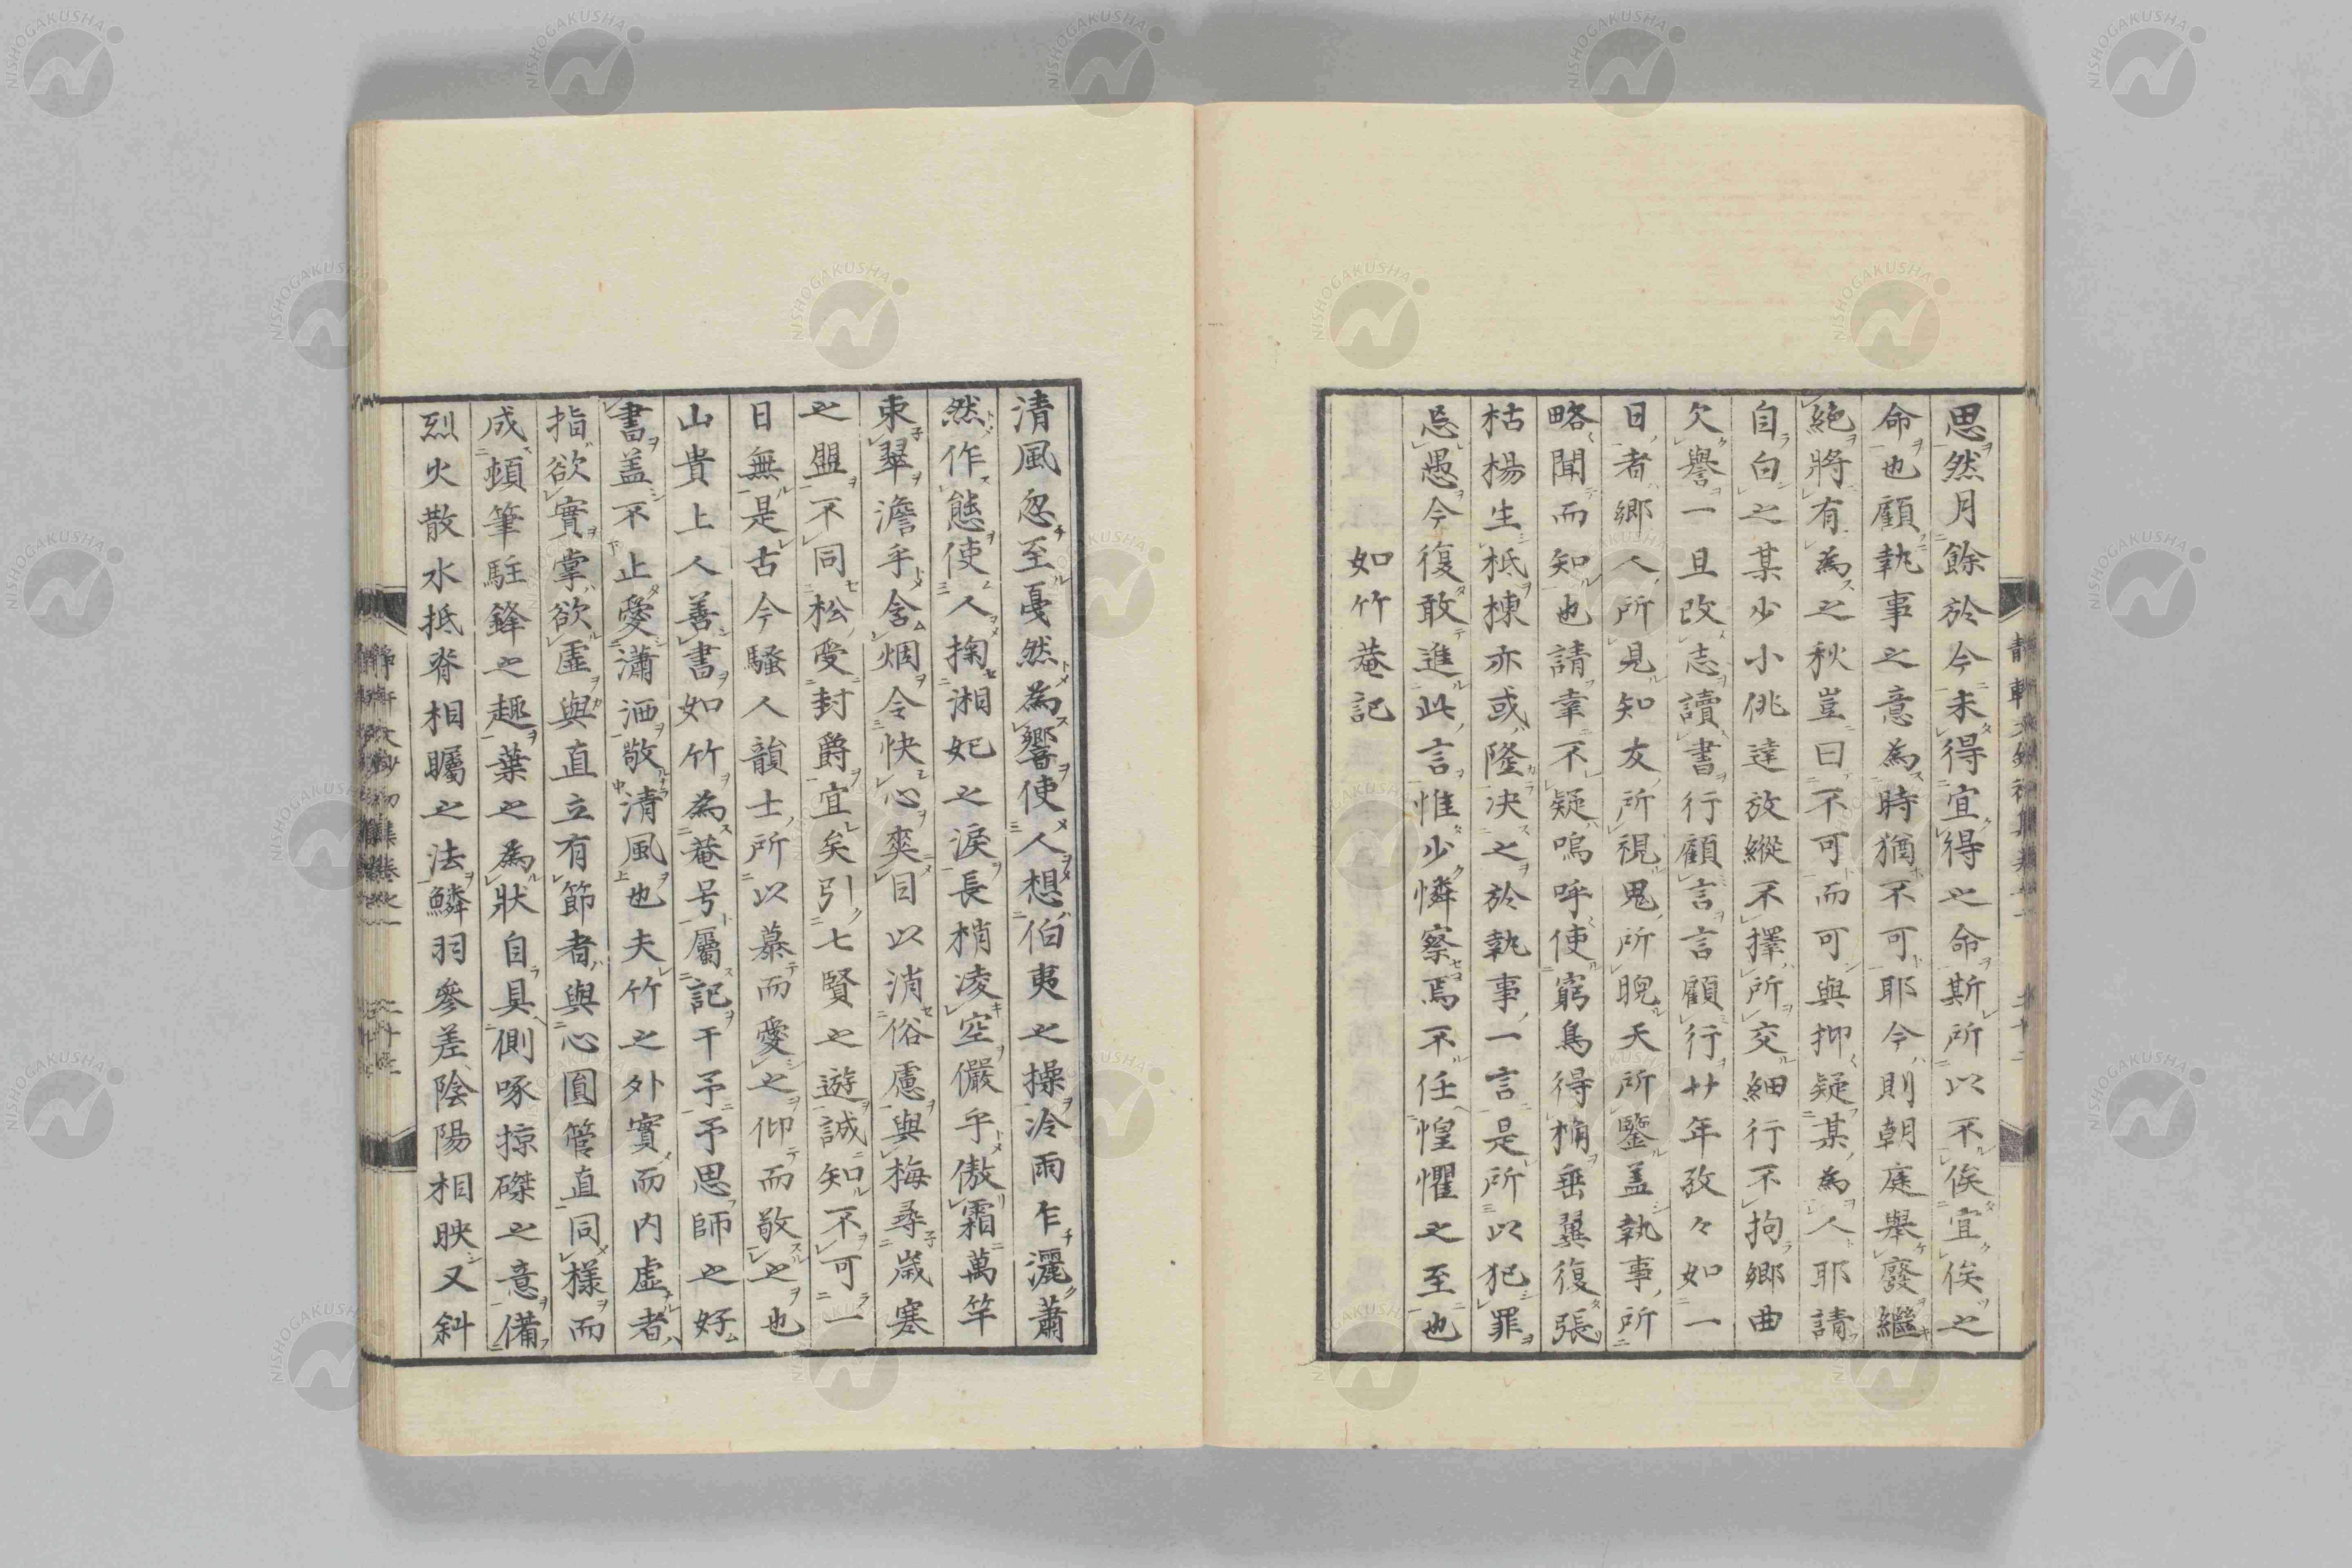 思然月餘於今未得宜得之命斯所以不俟宜俟之
命也顧執事之意為時猶不可耶今則朝庭舉廢繼
絶將有為之秋豈曰不可而可與抑疑某為人耶請
自白之某少小佻達放縱不擇所交細行不拘鄉曲
欠譽一旦改志讀書行顧言言顧行廿年孜々如一
日者鄉人所見知友所視鬼所睨天所鑒盖執事所
略聞而知也請幸不疑嗚呼使窮鳥得桷垂翼復張
枯楊生柢棟亦或隆决之於執事一言是所以犯罪
忌愚今復敢進此言惟少憐察焉不任惶懼之至也
如竹菴記
清風忽至戛然為響使人想伯夷之操冷雨乍灑蕭
然作態使人掬湘妃之淚長梢凌空儼乎傲霜萬竿
束翠澹乎含烟令快心爽目以消俗慮與梅尋歳寒
之盟不同松受封爵宜矣引七賢之遊誠知不可一
日無是古今騷人韻士所以慕而愛之仰而敬之也
山貴上人善書如竹為菴号屬記干予予思師之好
書盖不止愛瀟洒敬清風也夫竹之外實而内虚者
指欲實掌欲虚與直立有節者與心圓管直同樣而
成頓筆駐鋒之趣葉之為狀自具側啄掠磔之意備
烈火散水抵脊相矚之法鱗羽參差陰陽相映又斜